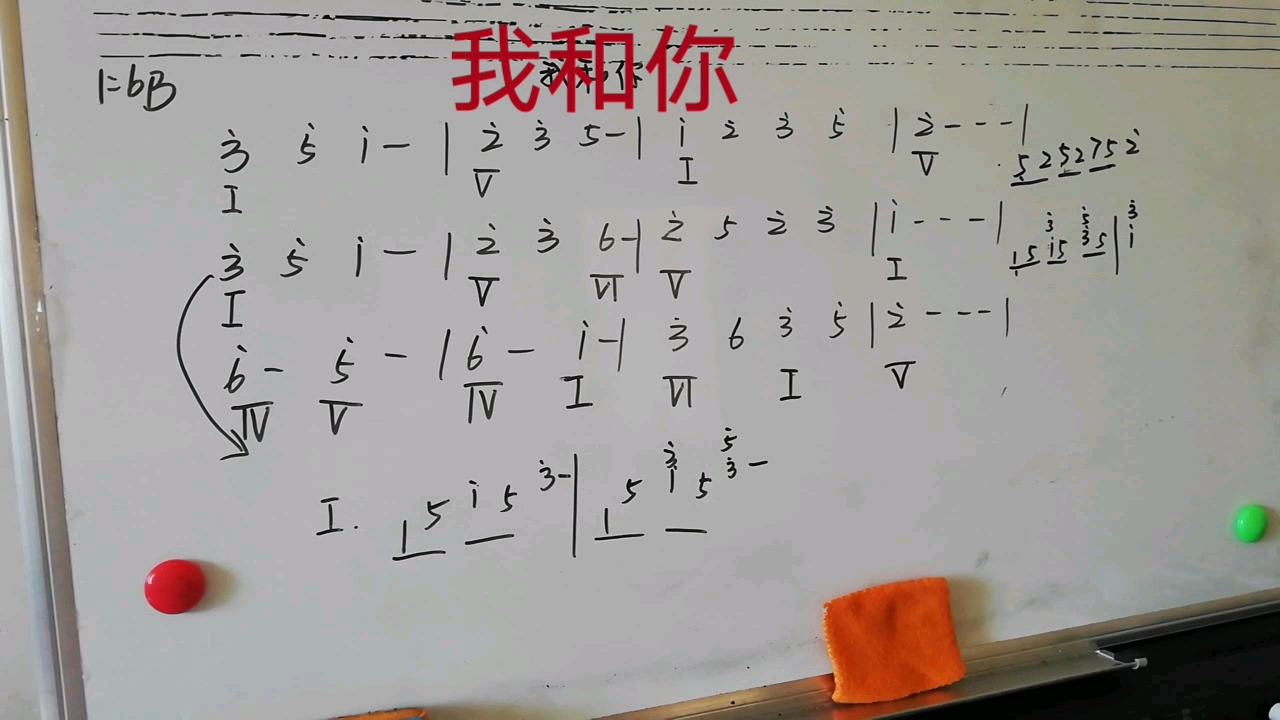 我和你
我和你
1=bB
3̇ 5̇ i - | 2̇ 3̇ 5 - | i 2̇ 3̇ 5̇ | 2̇ - - - |
I V I V 5 2 5 2 7 5 2̇
3̇ 5̇ i - | 2̇ 3̇ 6 - | 2̇ 5 2̇ 3̇ | i - - - | 1 5 3̇ i 5 5̇ 3̇ 5 | 3̇ i
I V VI V I
6̇ - 5̇ - | 6̇ - i - | 3̇ 6 3̇ 5̇ | 2̇ - - - |
IV V IV I VI I V
I. 1 5 i 5 3̇ - | 1 5 3̇ i 5 5̇ 3̇ -